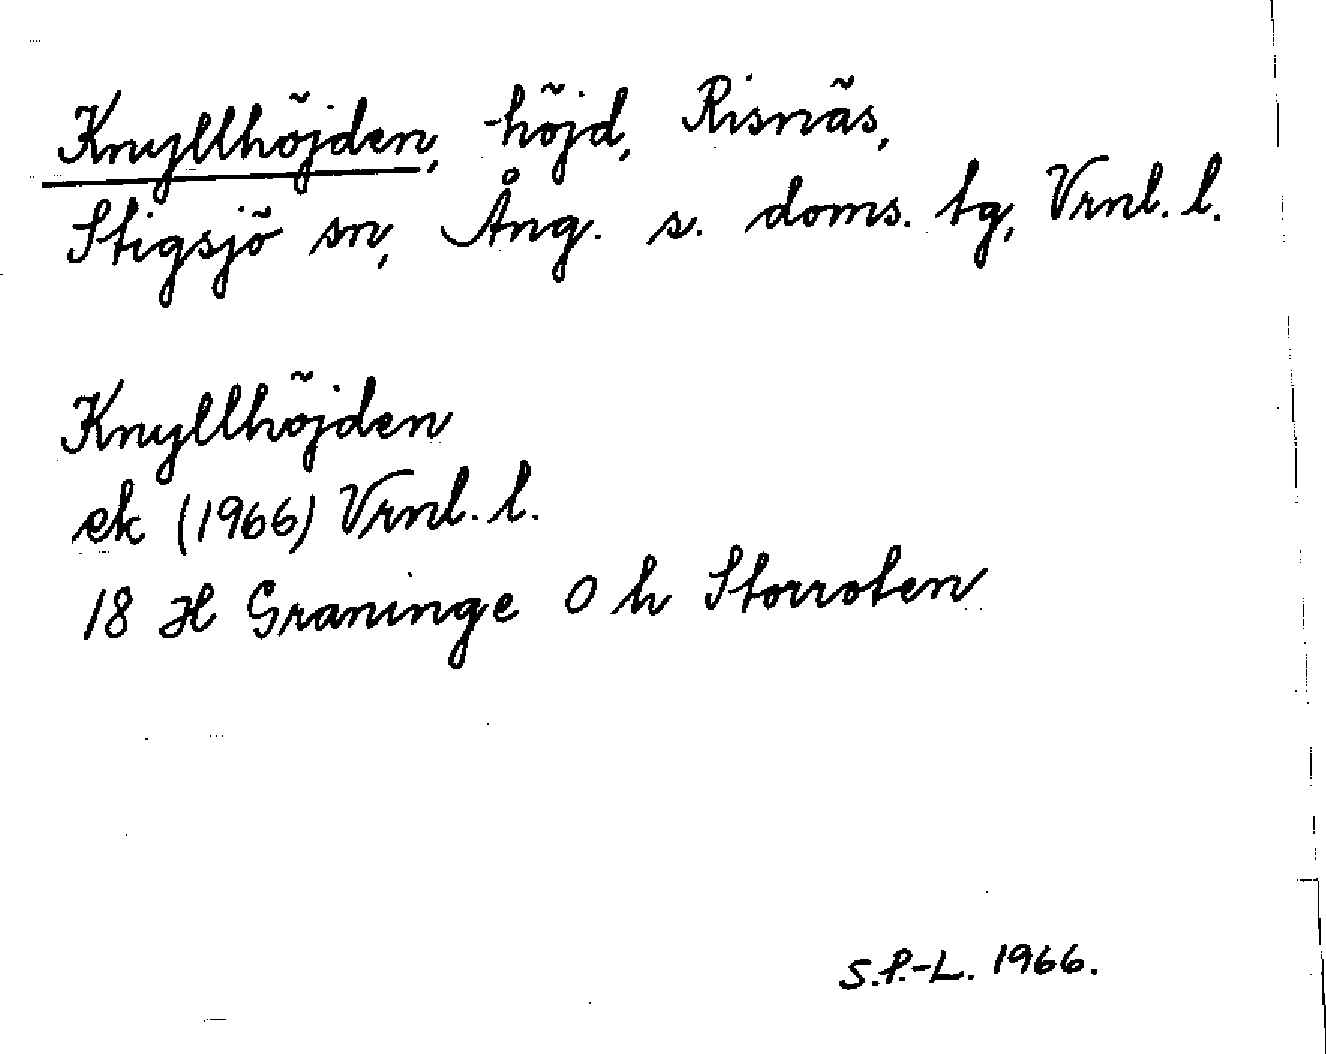 Knyllhöjden, -höjd, Risnäs,
Stigsjö sn, Ång. s. doms. tg, Vrnl. l.
Knyllhöjden
ek (1966) Vrnl. l.
18 H Graninge O h Storroten
S.P.-L. 1966.